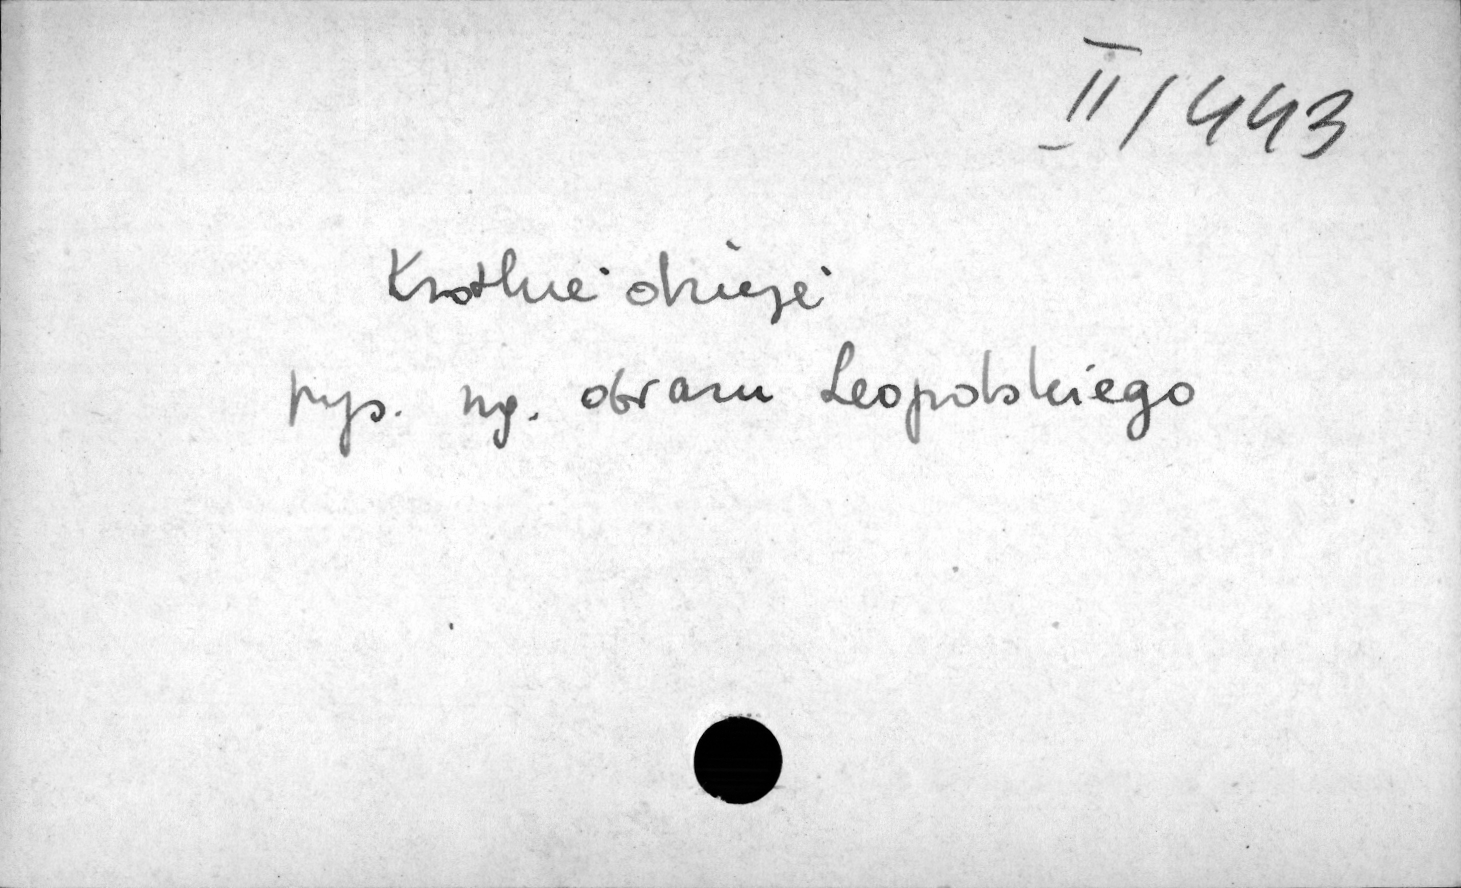 II/443
Krótkie dzieje
rys. wg. obrazu Leopolskiego